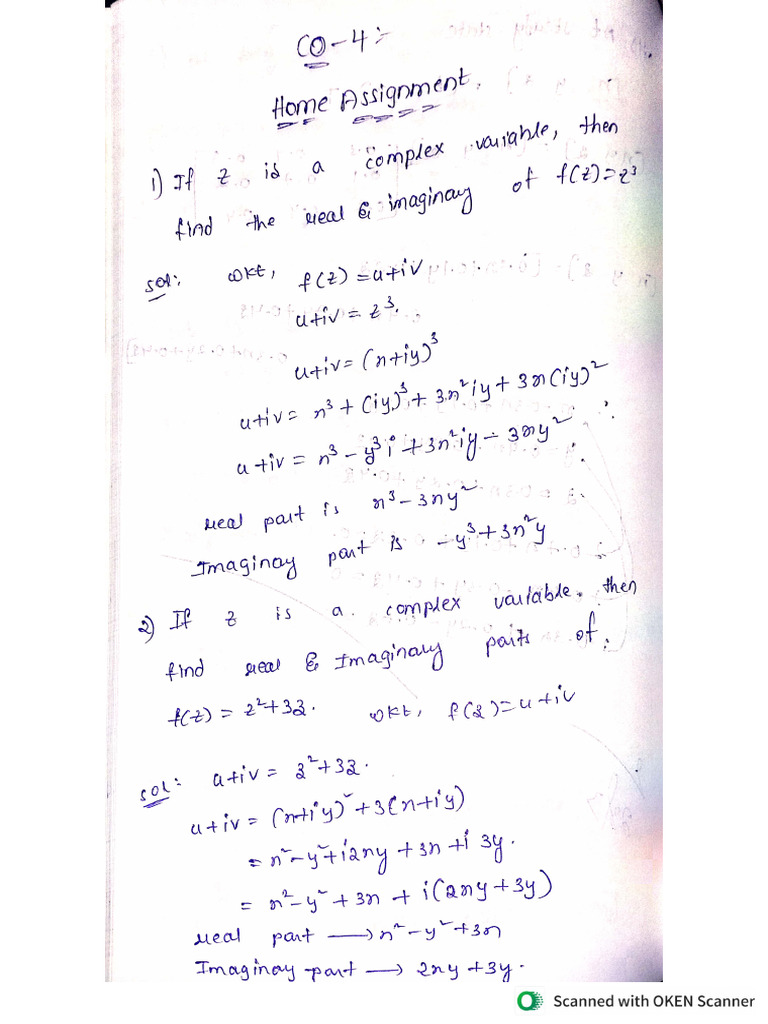 CO-4:-
Home Assignment.
1) If z is a complex variable, then
find the real & imaginary of f(z)=z³
sol: WKT, f(z)=u+iv
u+iv = z³.
u+iv = (x+iy)³
u+iv = x³ + (iy)³ + 3x²iy + 3x(iy)²
u+iv = x³ - y³i + 3x²iy - 3xy²
real part is x³-3xy²
Imaginay part is -y³+3x²y
2) If z is a complex variable. then
find real & Imaginary parts of.
f(z) = z²+3z. WKT, f(z)=u+iv
sol: u+iv = z²+3z.
u+iv = (x+iy)²+3(x+iy)
= x²-y²+i2xy+3x+i3y.
= x²-y²+3x+i(2xy+3y)
real part ⟶ x²-y²+3x
Imaginay part ⟶ 2xy+3y.
Scanned with OKEN Scanner